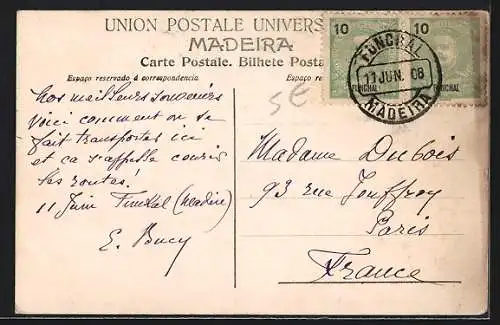 UNION POSTALE UNIVERS
MADEIRA
Carte Postale. Bilhete Posta
Espaço reservado á correspondencia
Espaço re
10
10
FUNCHAL
FUNCHAL
FUNCHAL
11 JUN. 08
MADEIRA
5€
Nos meilleurs souvenirs
Voici comment on se
fait transporter ici
et ça s'appelle courir
les routes!
11 Juin (Madère)
E. Bucy
Madame Dubois
93 rue Jouffroy
Paris
France